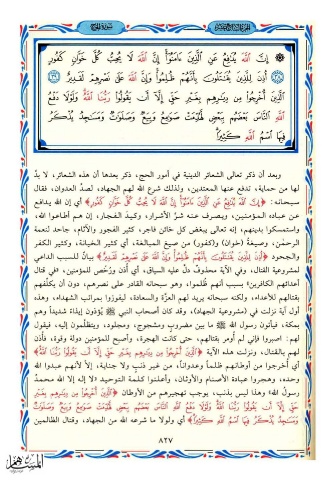 سورة الحج
﴿ إِنَّ اللَّهَ يُدَافِعُ عَنِ الَّذِينَ ءَامَنُوٓا۟ إِنَّ اللَّهَ لَا يُحِبُّ كُلَّ خَوَّانٍ كَفُورٍ
﴿٣٨﴾ أُذِنَ لِلَّذِينَ يُقَاتَلُونَ بِأَنَّهُمْ ظُلِمُوا۟ وَإِنَّ اللَّهَ عَلَىٰ نَصْرِهِمْ لَقَدِيرٌ ﴿٣٩﴾
الَّذِينَ أُخْرِجُوا۟ مِن دِيَارِهِم بِغَيْرِ حَقٍّ إِلَّآ أَن يَقُولُوا۟ رَبُّنَا اللَّهُ وَلَوْلَا دَفْعُ
اللَّهِ النَّاسَ بَعْضَهُم بِبَعْضٍ لَّهُدِّمَتْ صَوَامِعُ وَبِيَعٌ وَصَلَوَاتٌ وَمَسَاجِدُ يُذْكَرُ
فِيهَا اسْمُ اللَّهِ كَثِيرًا﴾
وبعد أن ذكر تعالى الشعائر الدينية في أمور الحج، ذكر بعدها أن هذه الشعائر، لا بدَّ
لها من حماية، تدفع عنها المعتدين، ولذلك شرع الله لهم الجهاد، لصدِّ العدوان، فقال
سبحانه: ﴿إِنَّ اللَّهَ يُدَافِعُ عَنِ الَّذِينَ ءَامَنُوٓا۟ إِنَّ اللَّهَ لَا يُحِبُّ كُلَّ خَوَّانٍ كَفُورٍ﴾ أي إن الله يدافع
عن عباده المؤمنين، ويصرف عنه شرَّ الأشرار، وكيدَ الفجار، إن هم أطاعوا الله،
واستمسكوا بدينهم، إنه تعالى يبغض كل خائن فاجر، كثير الفجور والآثام، جاحد لنعمة
الرحمٰن، وصيغةُ (خوان) و(كفور) من صيغ المبالغة، أي كثير الخيانة، وكثير الكفر
والجحود ﴿أُذِنَ لِلَّذِينَ يُقَاتَلُونَ بِأَنَّهُمْ ظُلِمُوا۟ وَإِنَّ اللَّهَ عَلَىٰ نَصْرِهِمْ لَقَدِيرٌ﴾ بيانٌ للسبب الداعي
لمشروعية القتال، وفي الآية محذوف دلَّ عليه السياق، أي أُذن ورُخص للمؤمنين، في قتال
أعدائهم الكافرين، بسبب أنهم ظُلموا، وهو سبحانه القادر على نصرهم، دون أن يكلِّفهم
بقتالهم للأعداء، ولكنه سبحانه يريد لهم العزَّة والسعادة، ليفوزوا بمراتب الشهداء، وهذه
أول آية نزلت في (مشروعية الجهاد)، وقد كان أصحاب النبي ﷺ يُؤذون إيذاءً شديداً وهم
بمكة، فيأتون رسول الله ﷺ ما بين مضروبٍ ومشجوج، ومجلود، ويتظلَّمون إليه، فيقول
لهم: اصبروا فإني لم أُومر بقتالهم، حتى كانت الهجرة، وأصبح للمؤمنين دولة وقوة، فأُذن
لهم بالقتال، ونزلت هذه الآية ﴿الَّذِينَ أُخْرِجُوا۟ مِن دِيَارِهِم بِغَيْرِ حَقٍّ إِلَّآ أَن يَقُولُوا۟ رَبُّنَا اللَّهُ﴾
أي أُخرجوا من أوطانهم ظلماً وعدواناً، من غير ذنبٍ ولا جناية، إلَّا لأنهم عبدوا الله
وحده، وهجروا عبادة الأصنام والأوثان، وأعلنوا كلمة التوحيد «لا إله إلا الله محمدٌ
رسولُ الله» وهذا ليس بذنب، يوجب تهجيرهم من الأوطان ﴿الَّذِينَ أُخْرِجُوا۟ مِن دِيَارِهِم بِغَيْرِ
حَقٍّ إِلَّآ أَن يَقُولُوا۟ رَبُّنَا اللَّهُ وَلَوْلَا دَفْعُ اللَّهِ النَّاسَ بَعْضَهُم بِبَعْضٍ لَّهُدِّمَتْ صَوَامِعُ وَبِيَعٌ وَصَلَوَاتٌ
وَمَسَاجِدُ يُذْكَرُ فِيهَا اسْمُ اللَّهِ كَثِيرًا﴾ أي ولولا ما شرعه الله من الجهاد، وقتال الظالمين
٨٢٧